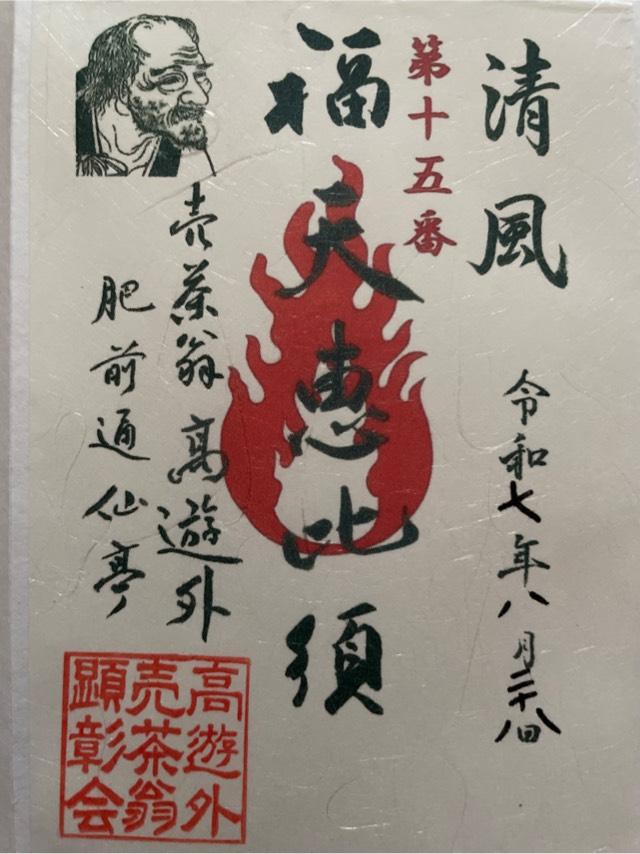 清風
令和七年八月二十八日
第十五番
福天恵比須
売茶翁 高遊外
肥前通仙亭
高遊外
売茶翁
顕彰会